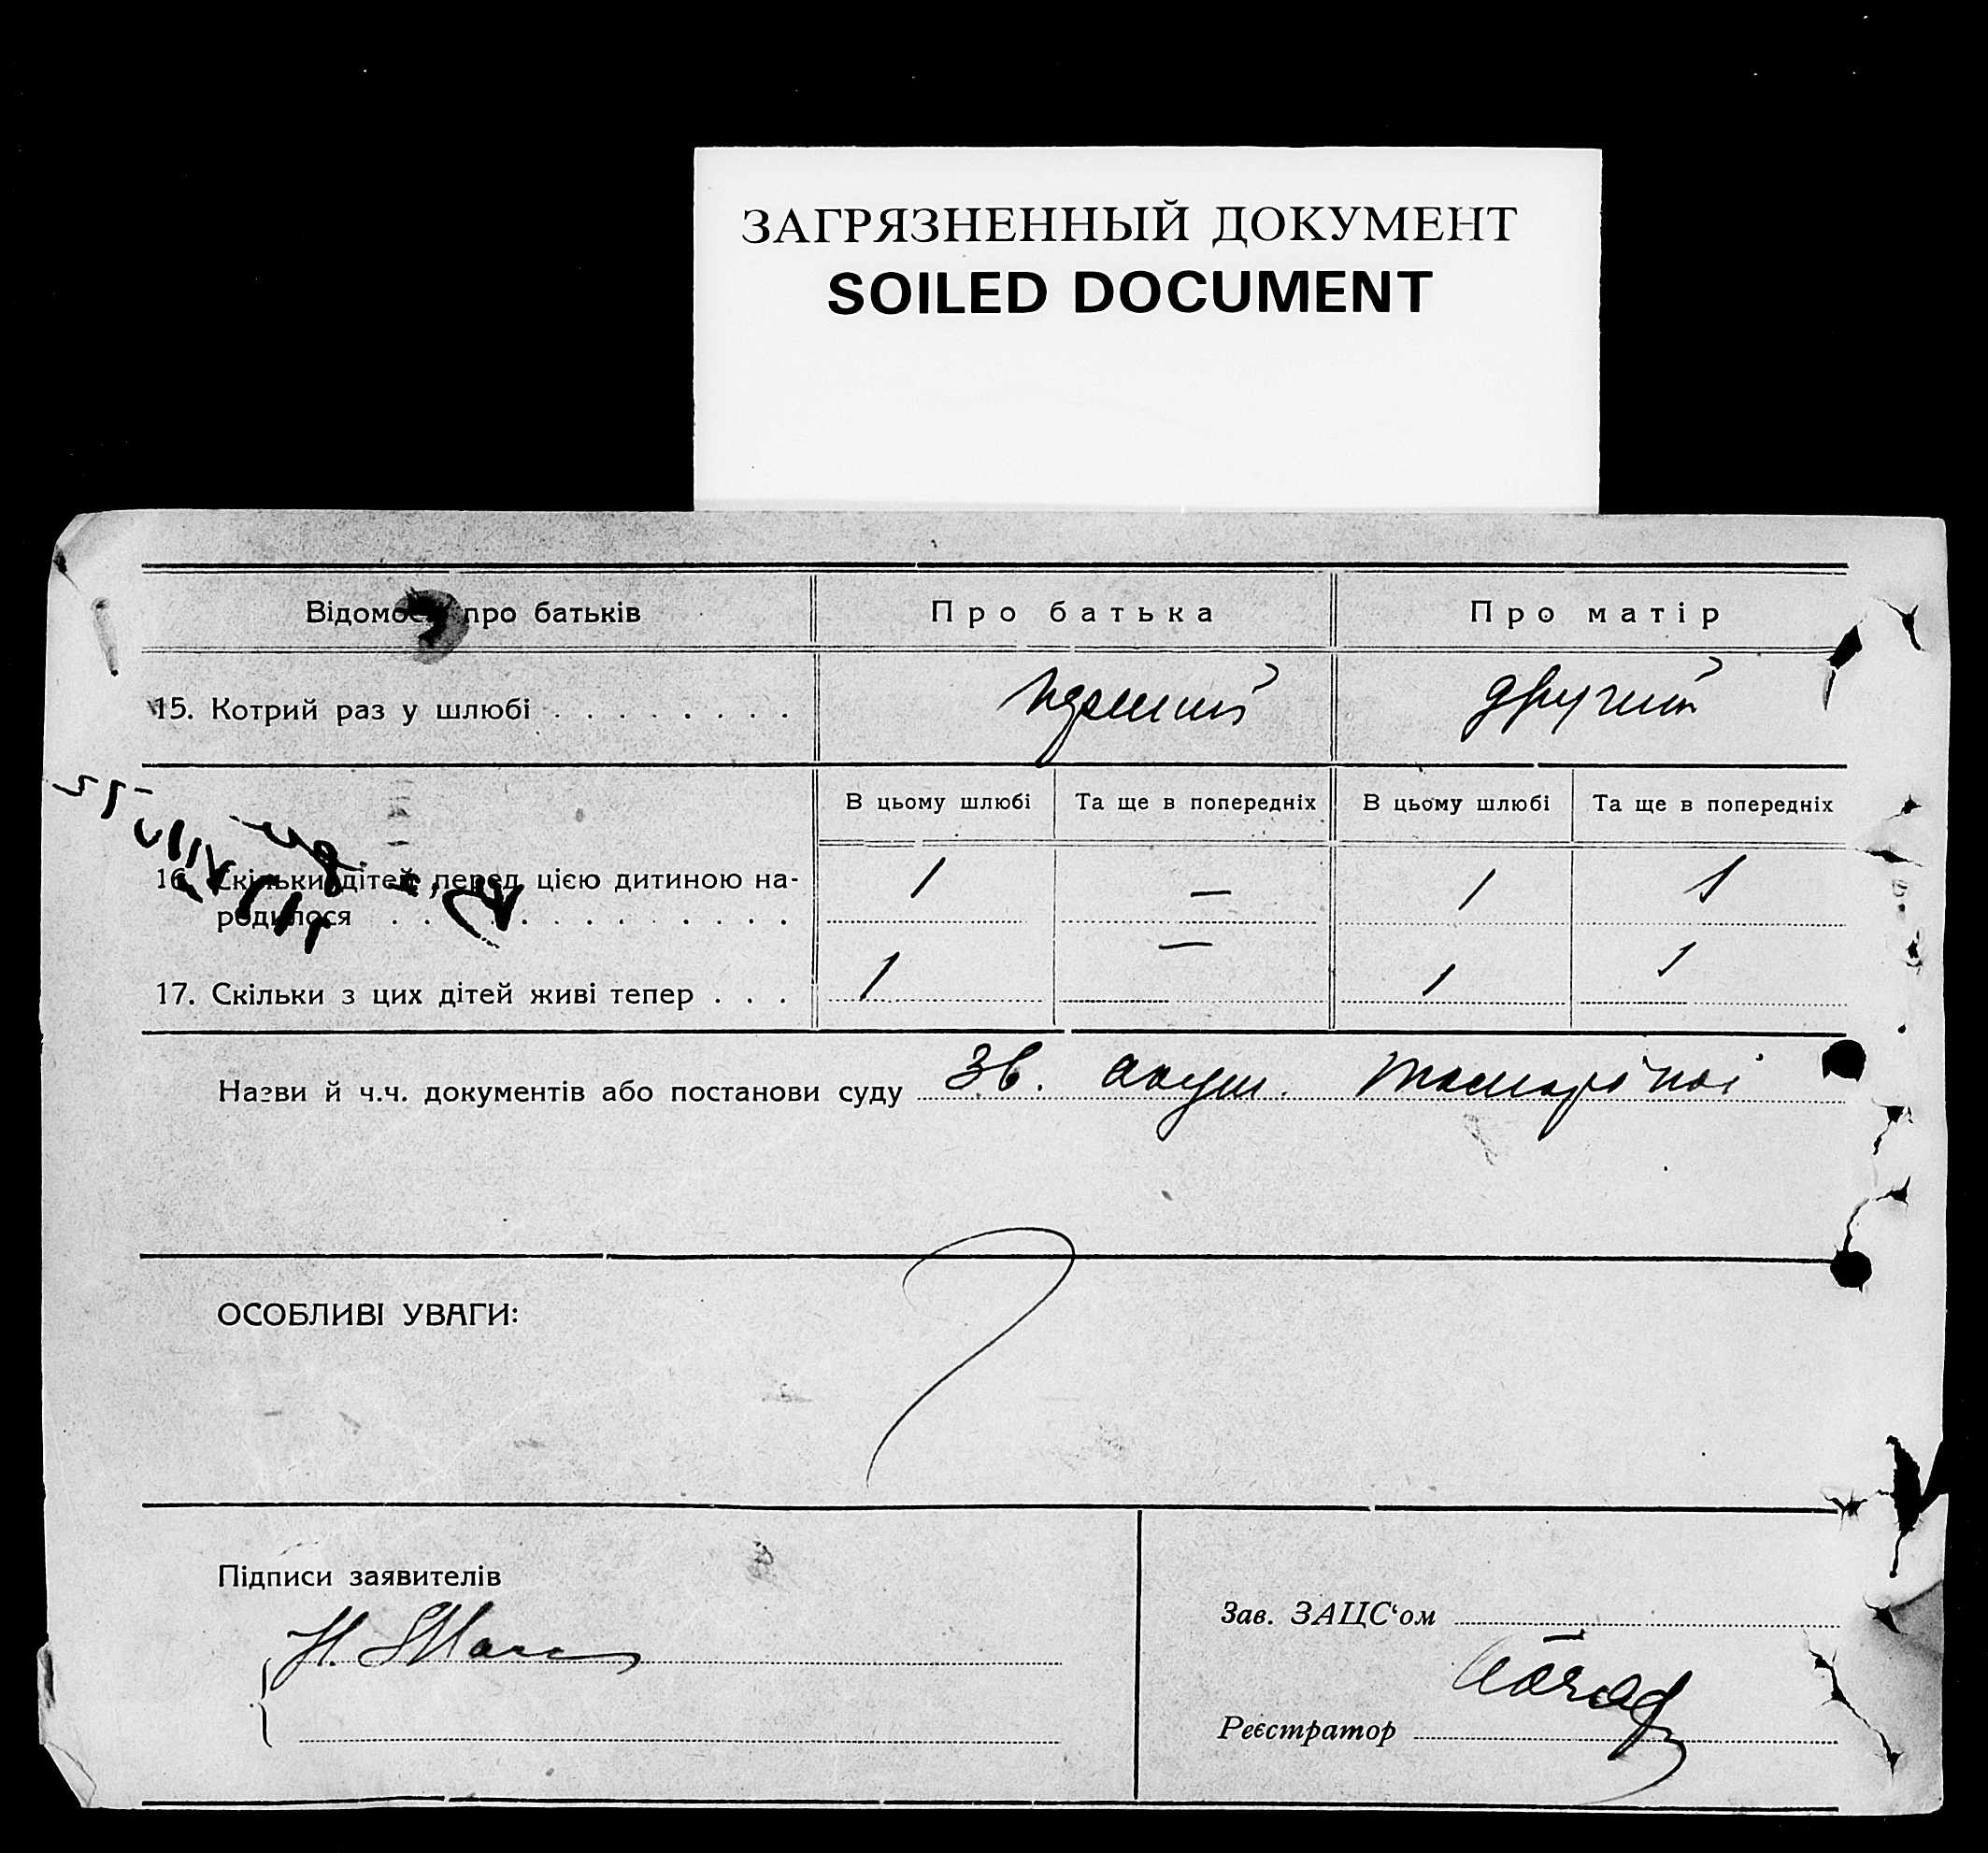 ЗАГРЯЗНЕННЫЙ ДОКУМЕНТ
SOILED DOCUMENT
Відомості про батьків Про батька Про матір
15. Котрий раз у шлюбі . . . . . . . . перший другий
В цьому шлюбі Та ще в попередніх В цьому шлюбі Та ще в попередніх
16. Скільки дітей перед цією дитиною на- 1 — 1 1
родилося . . . . . . . . . . . .
17. Скільки з цих дітей живі тепер . . . 1 — 1 1
Назви й ч.ч. документів або постанови суду Зв. акуш.
ОСОБЛИВІ УВАГИ:
Підписи заявителів
Зав. ЗАЦС‘ом
Реєстратор